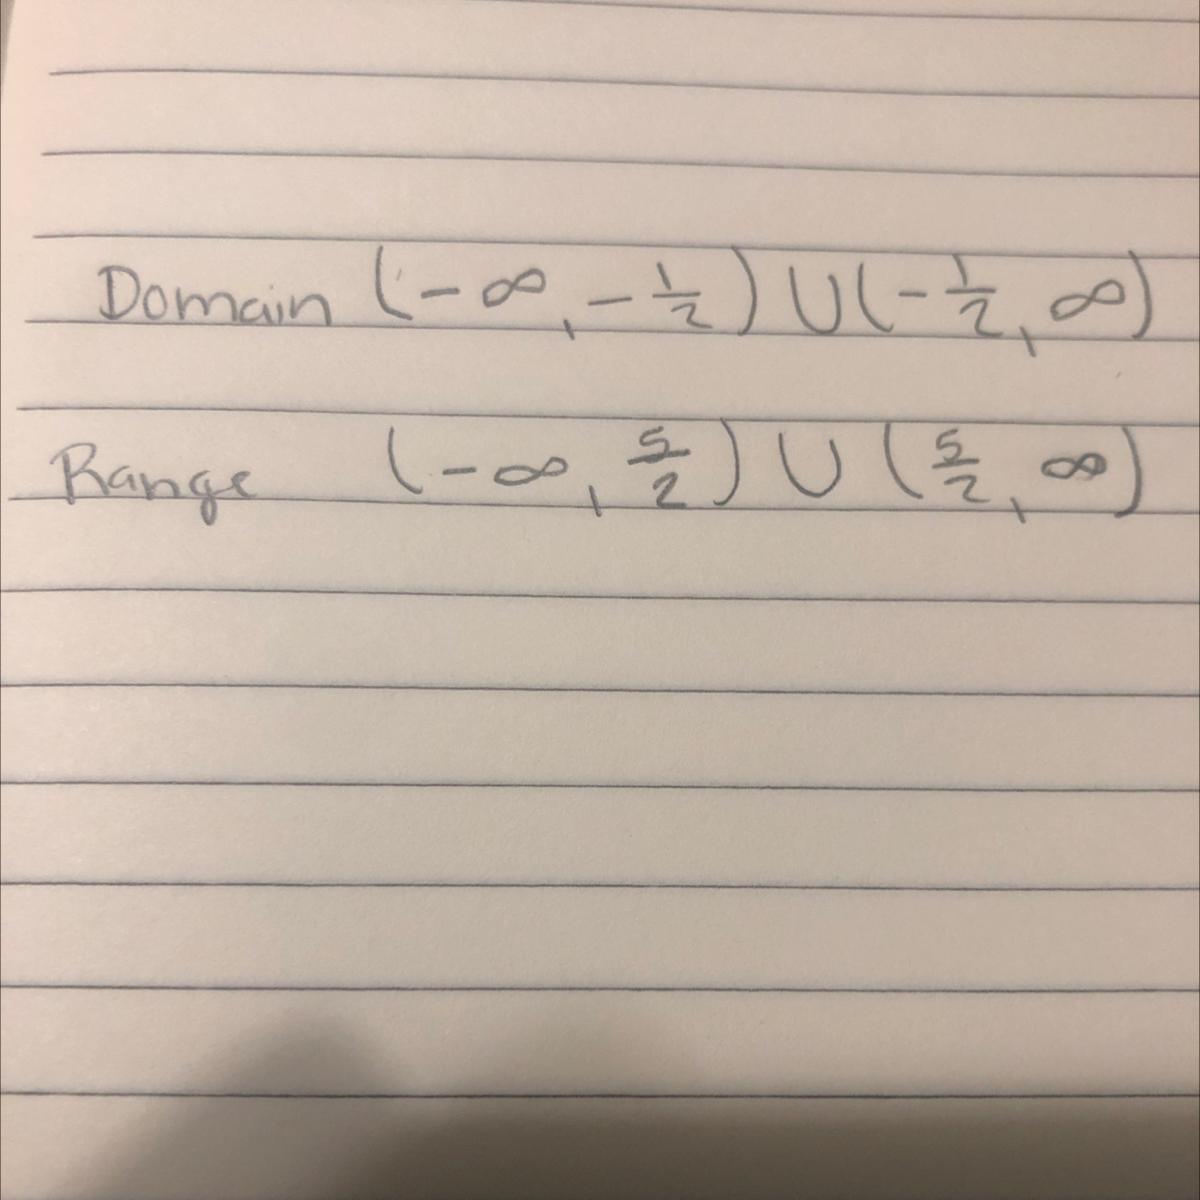 Domain (-∞, -1/2) ∪ (-1/2, ∞)
Range (-∞, 5/2) ∪ (5/2, ∞)